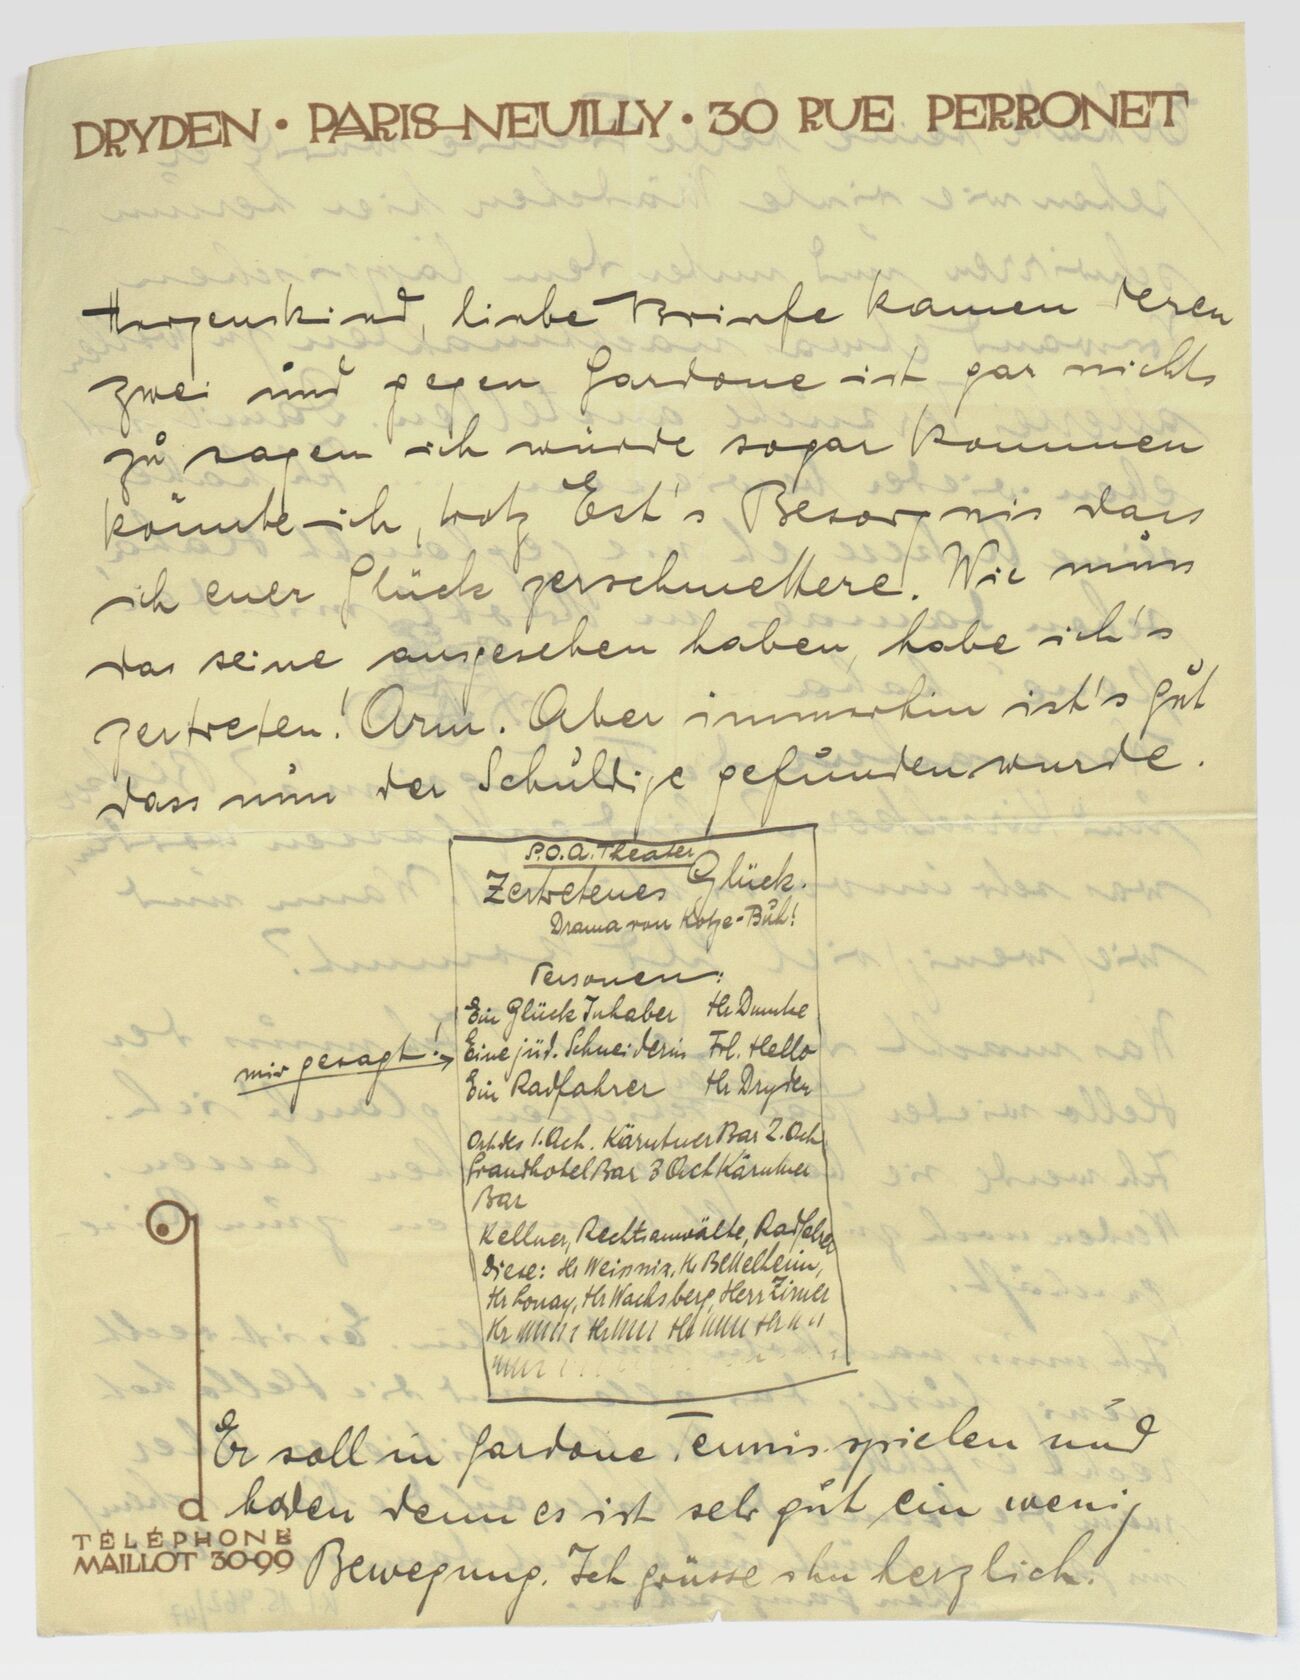 DRYDEN • PARIS-NEUILLY • 30 RUE PERRONET
Herzenskind, liebe Briefe kamen deren
zwei und gegen Gardone ist gar nichts
zu sagen ich würde sogar kommen
könnte ich, trotz Est's Besorgnis dass
ich euer Glück zerschmettere. Wie muss
das seine ausgesehen haben, habe ich's
zertreten! Arm. Aber immerhin ist's gut
dass nun der Schuldige gefunden wurde.
P.O.A. Theater
Zertretenes Glück.
Drama von Kotze-Buh!
Personen:
Ein Glück Inhaber Hr
mir gesagt! Eine jüd. Schneiderin Frl. Hello
Ein Radfahrer Hr Dryden
Ort des 1. Act. Kärntner Bar 2. Act
Grandhotel Bar 3 Act Kärntner
Bar
Kellner, Rechtsanwälte, Radfahrer
Diese: Hr Weinnix, Hr Bettelheim,
Hr Hr Wachsberg, Herr Zimer
Hr Hr Hr Hr
Er soll in Gardone Tennis spielen und
baden denn es ist sehr gut ein wenig
Bewegung. Ich grüsse ihn herzlich.
d
TÉLÉPHONE
MAILLOT 30-99